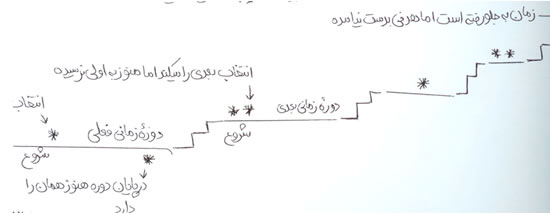 زمان به جلو رفته است اما هدفی بدست نیامده
انتخاب بعدی را میکند اما هنوز به اولی نرسیده
انتخاب
دورهٔ زمانی بعدی
دورهٔ زمانی فعلی
شروع
شروع
در پایان دوره هنوز همان را
دارد